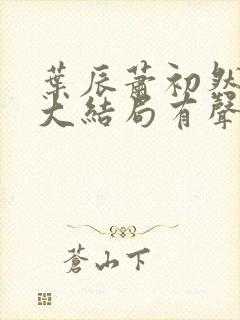 葉辰蕭初然
大結局有聲
蒼山下